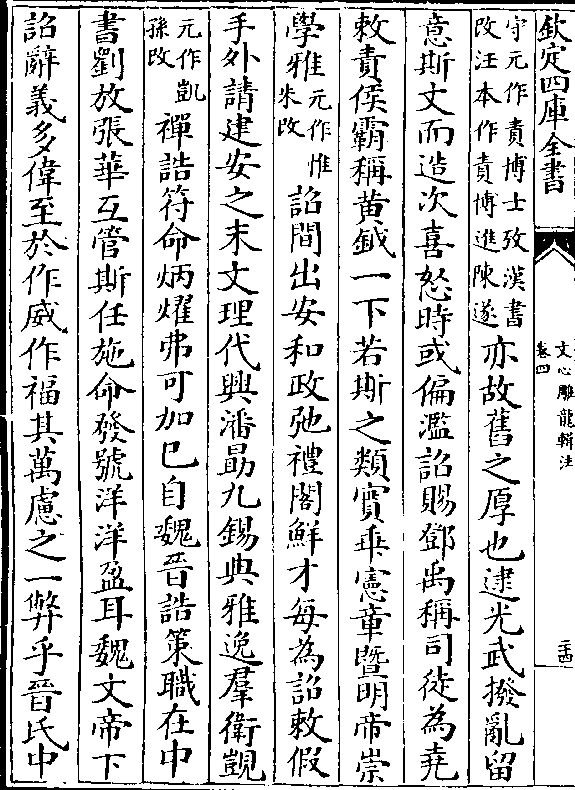 欽定四庫全書
文心雕龍輯注
卷四
二十四
守元作責博士攷漢書
改汪本作責博進陳遂
亦故舊之厚也逮光武撥亂留
意斯文而造次喜怒時或偏濫詔賜鄧禹稱司徒為堯
敕責侯霸稱黄鉞一下若斯之類實乖憲章暨明帝崇
學雅
元作惟
朱改
詔間出安和政弛禮閣鮮才每為詔敕假
手外請建安之末文理代興潘勗九錫典雅逸羣衛覬
元作凱
孫改
禪誥符命炳燿弗可加已自魏晉誥策職在中
書劉放張華互管斯任施命發號洋洋盈耳魏文帝下
詔辭義多偉至於作威作福其萬慮之一弊乎晉氏中